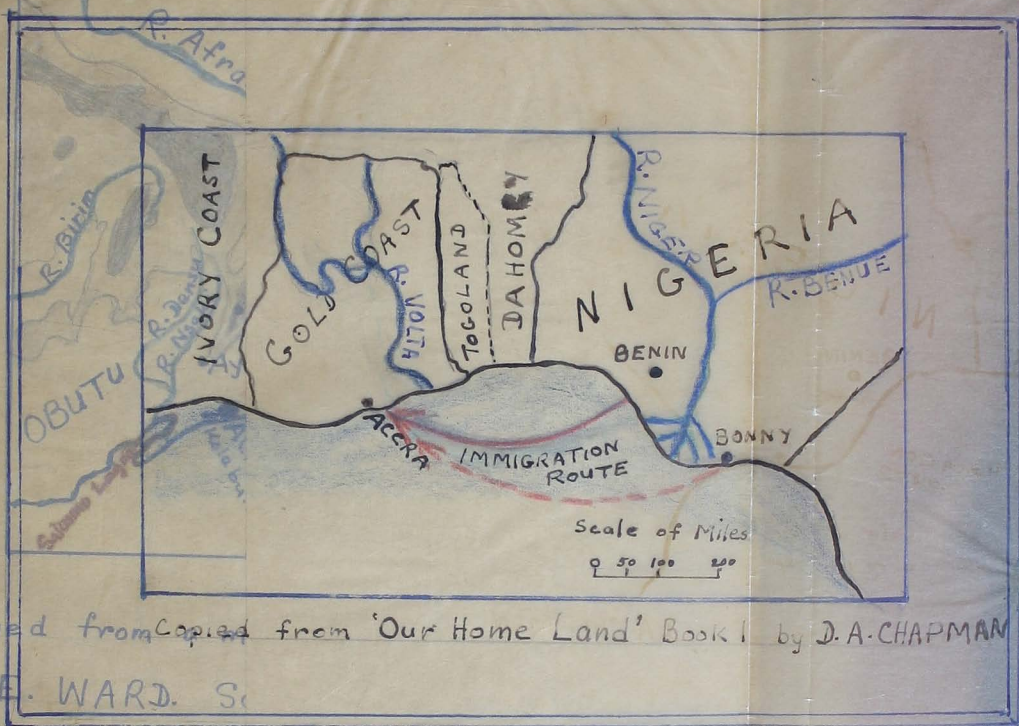 R. Afra
R. Birim
R. Densu
OBUTU
IVORY COAST
GOLD COAST
R. VOLTA
TOGOLAND
DAHOMEY
NIGERIA
R. NIGER
R. BENUE
BENIN
BONNY
ACCRA
IMMIGRATION
ROUTE
Scale of Miles
0 50 100 200
ed from Copied from 'Our Home Land' Book 1 by D.A. CHAPMAN
E. WARD. S